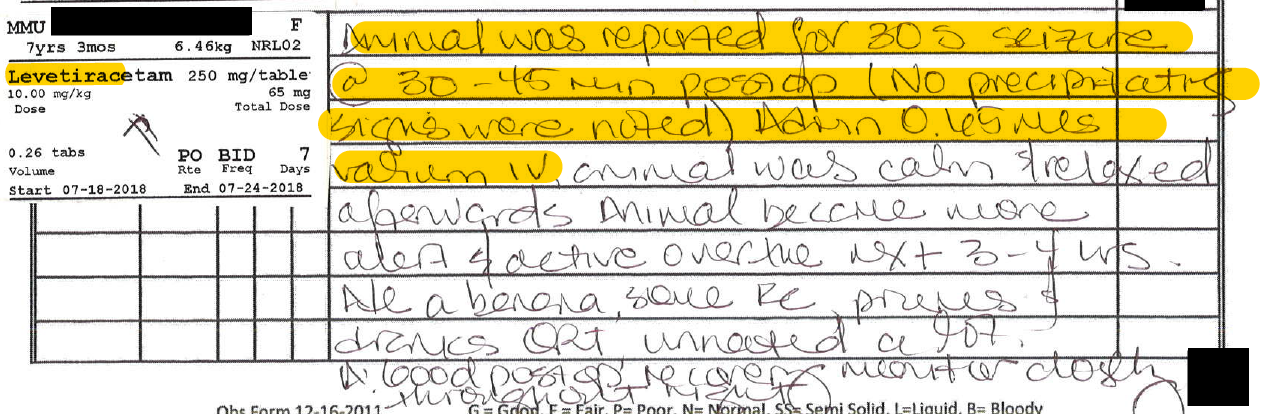 MMU F
7yrs 3mos 6.46kg NRL02
Levetiracetam 250 mg/table
10.00 mg/kg 65 mg
Dose Total Dose
0.26 tabs PO BID 7
Volume Rte Freq Days
Start 07-18-2018 End 07-24-2018
Animal was reported for 30 s seizure
@ 30-45 min postop (No precipitating
signs were noted) Admin 0.65 mls
valium IV, animal was calm & relaxed
afterwards Animal became more
alert & active over the next 3-4 hrs.
Ate a banana, some prunes &
drinks ORT
A: Good postop recovery monitor closely
throughout night
Obs Form 12-16-2011 G = Good, F = Fair, P= Poor, N= Normal, SS= Semi Solid, L=Liquid, B= Bloody